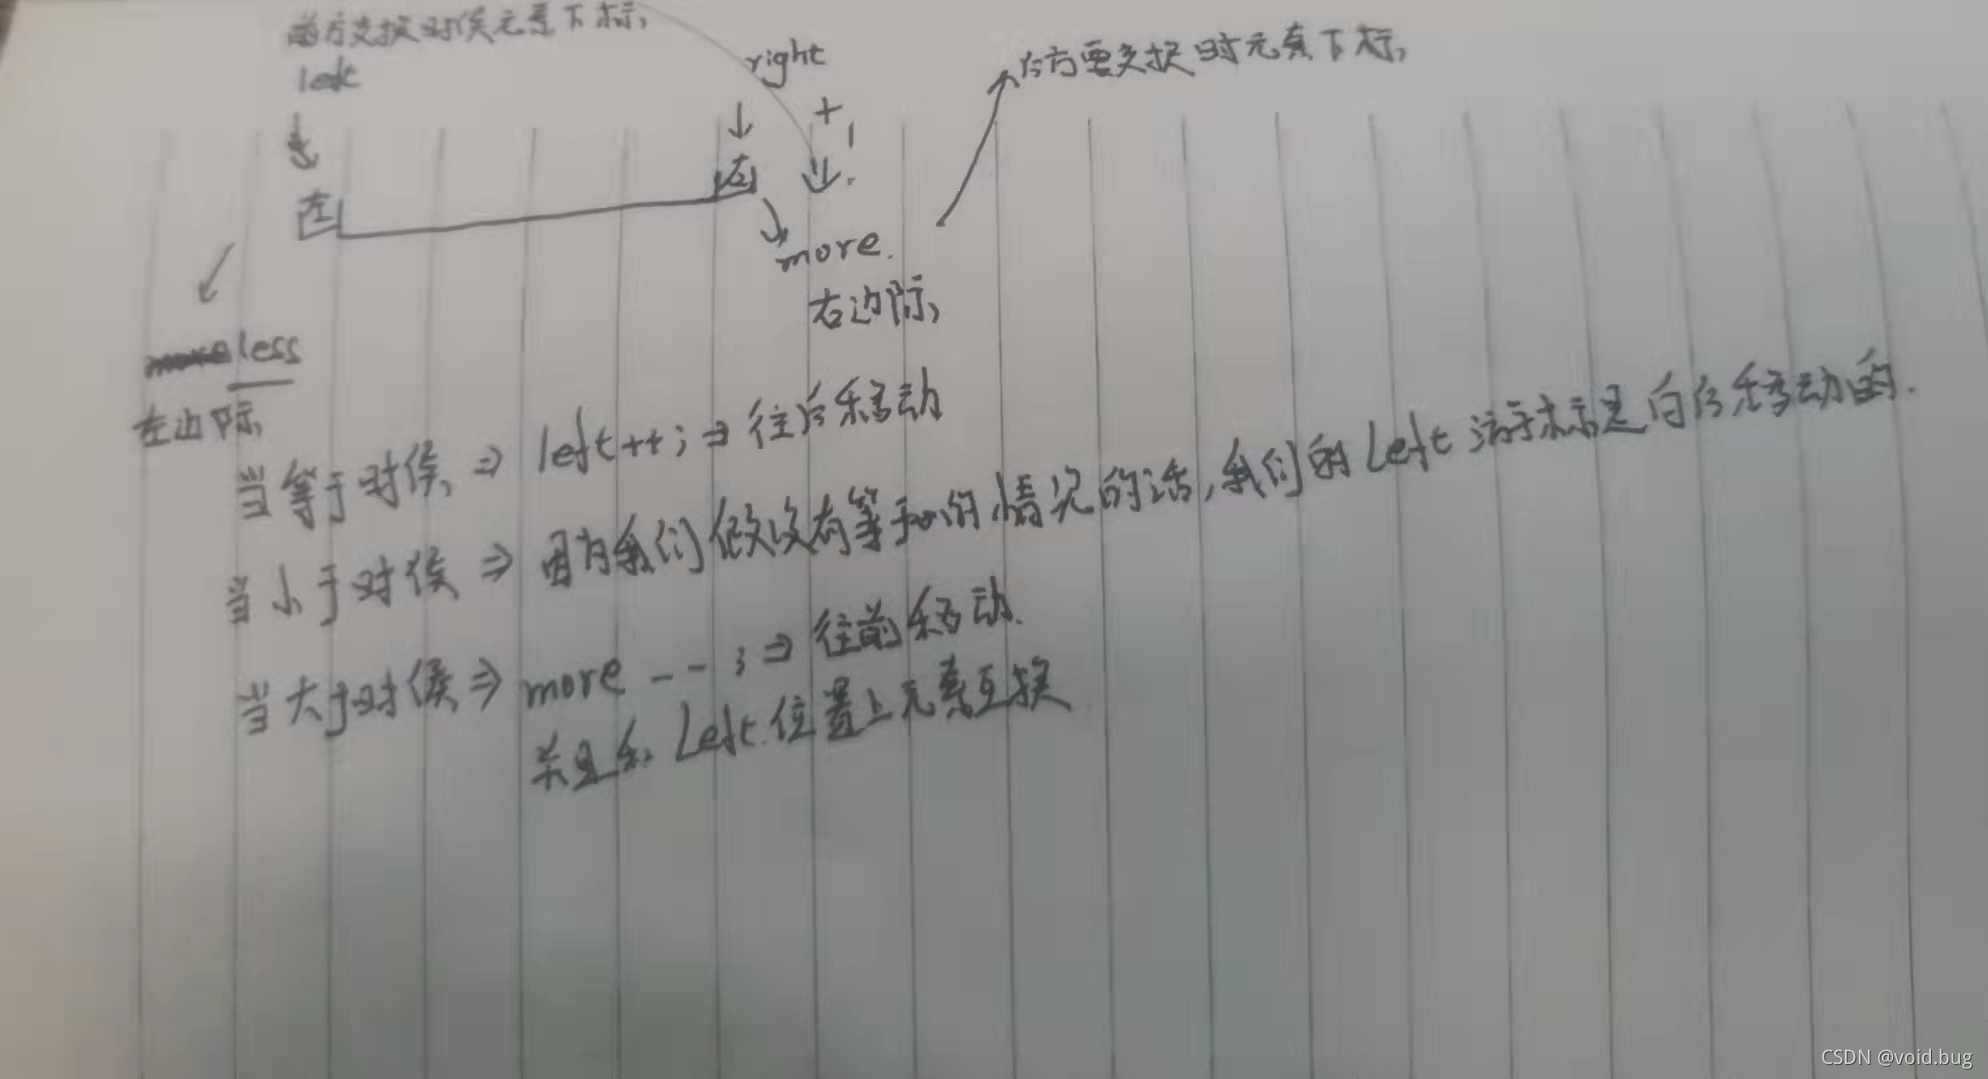 前方交换时候元素下标,
left
right
+1
后方要交换时元素下标,
左
右
more.
右边际,
less
左边际,
当等于时候, ⇒ left++; ⇒ 往后移动
当小于时候 ⇒ 因为我们做没有等于的情况的话, 我们的Left 游标是向后移动的.
当大于时候 ⇒ more --; ⇒ 往前移动.
并且和 Left 位置上元素互换
CSDN @void.bug